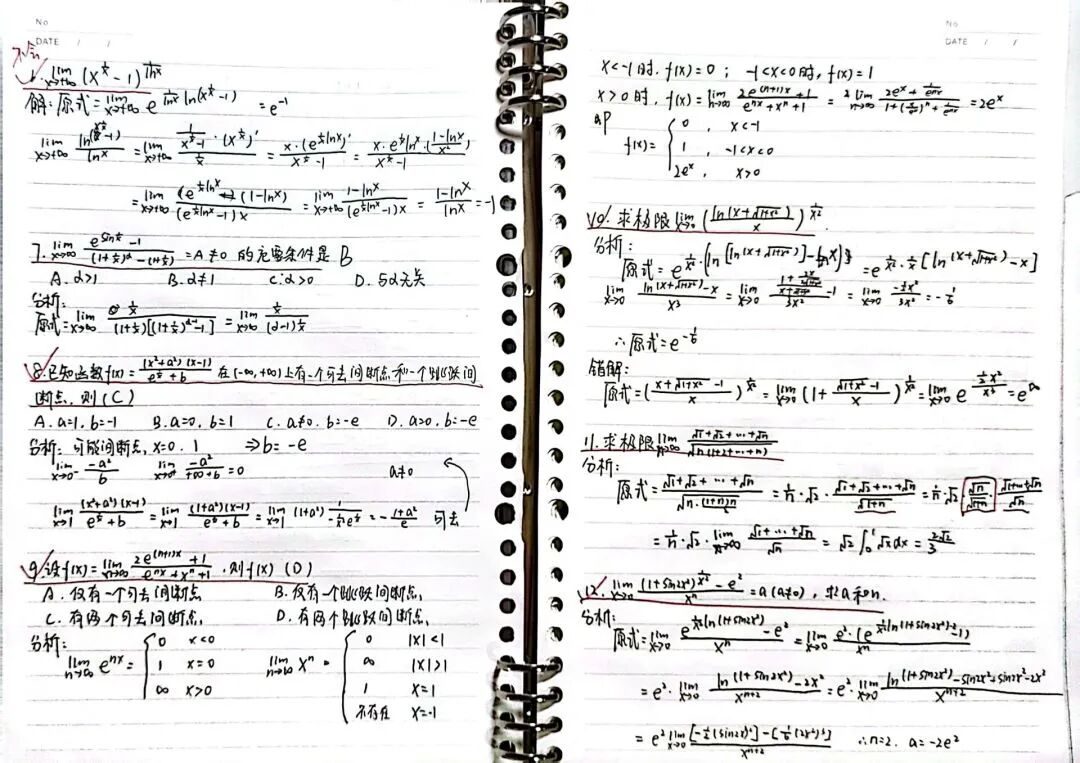 No
DATE / /
1. lim x→+∞ (x^(1/x) - 1)^(1/lnx)
解:原式 = lim x→+∞ e^(1/lnx ln(x^(1/x) - 1)) = e^(-1)
lim x→+∞ ln(x^(1/x) - 1)/lnx = lim x→+∞ (1/(x^(1/x) - 1) · (x^(1/x))')/(1/x) = x·(e^(1/x lnx))'/(x^(1/x) - 1) = x·e^(1/x lnx)·((1-lnx)/x²)/(x^(1/x) - 1)
= lim x→+∞ e^(1/x lnx) (1-lnx)/((e^(1/x lnx) - 1)x) = lim x→+∞ (1-lnx)/((e^(1/x lnx) - 1)x) = (1-lnx)/lnx = -1
7. lim x→∞ (e^(sin 1/x) - 1)/((1+1/x)^α - (1+1/x)) = A ≠ 0 的充要条件是 B
A. α>1 B. α≠1 C. α>0 D. 与α无关
分析:
原式 = lim x→∞ (1/x)/((1+1/x)[(1+1/x)^(α-1) - 1]) = lim x→∞ (1/x)/((α-1)1/x)
8. 已知函数 f(x) = (x²+a²)(x-1)/(e^(1/x)+b) 在 (-∞, +∞) 上有一个可去间断点和一个跳跃间
断点, 则 ( C )
A. a=1, b=-1 B. a=0, b=1 C. a≠0, b=-e D. a>0, b=-e
分析: 可能间断点, x=0, 1 ⇒ b=-e
lim x→0⁻ -a²/b lim x→0⁺ -a²/(+∞+b) = 0 a≠0
lim x→1 (x²+a²)(x-1)/(e^(1/x)+b) = lim x→1 (1+a²)(x-1)/(e^(1/x)+b) = lim x→1 (1+a²) 1/(-1/x² e^(1/x)) = -(1+a²)/e 可去
9. 设 f(x) = lim n→∞ (2e^((n+1)x)+1)/(e^(nx)+x^n+1), 则 f(x) ( D )
A. 仅有一个可去间断点 B. 仅有一个跳跃间断点
C. 有两个可去间断点 D. 有两个跳跃间断点
分析:
lim n→∞ e^(nx) = { 0 x<0 lim n→∞ x^n = { 0 |x|<1
1 x=0 ∞ |x|>1
∞ x>0 1 x=1
不存在 x=-1
No
DATE / /
x<-1时, f(x)=0; -1<x<0时, f(x)=1
x>0时, f(x) = lim n→∞ (2e^((n+1)x)+1)/(e^(nx)+x^n+1) = lim n→∞ (2e^x + 1/e^(nx))/(1+(x/e^x)^n+1/e^(nx)) = 2e^x
即
f(x) = { 0, x<-1
1, -1<x<0
2e^x, x>0
10. 求极限 lim x→0 (ln(x+√(1+x²))/x)^(1/x²)
分析:
原式 = e^(1/x²·[ln[ln(x+√(1+x²))] - lnx]) = e^(1/x²·1/x[ln(x+√(1+x²)) - x])
lim x→0 (ln(x+√(1+x²)) - x)/x³ = lim x→0 ((1+2x/(2√(1+x²)))/(x+√(1+x²)) - 1)/3x² = lim x→0 (-1/2 x²)/3x² = -1/6
∴原式 = e^(-1/6)
错解:
原式 = ((x+√(1+x²) - 1)/x)^(1/x²) = lim x→0 (1+(√(1+x²) - 1)/x)^(1/x²) = lim x→0 e^((1/2 x²)/x³) = e^∞
11. 求极限 lim n→∞ (√1+√2+…+√n)/√(n(1+2+…+n))
分析:
原式 = (√1+√2+…+√n)/√(n·(1+n)n/2) = 1/n·√2·(√1+√2+…+√n)/√(1+n) = 1/n·√2·√n/√(1+n)·(√1+…+√n)/√n
= 1/n·√2·lim n→∞ (√1+…+√n)/√n = √2∫₀¹√x dx = 2√2/3
12. lim x→0 ((1+sin2x²)^(1/x²) - e²)/x^n = a (a≠0), 求a和n.
分析:
原式 = lim x→0 (e^(1/x² ln(1+sin2x²)) - e²)/x^n = lim x→0 e²·(e^(1/x² ln(1+sin2x²)-2) - 1)/x^n
= e²·lim x→0 (ln(1+sin2x²) - 2x²)/x^(n+2) = e²·lim x→0 (ln(1+sin2x²) - sin2x²+sin2x²-2x²)/x^(n+2)
= e² lim x→0 ([-1/2(sin2x²)²] - [1/6(2x²)³])/x^(n+2) ∴n=2, a=-2e²